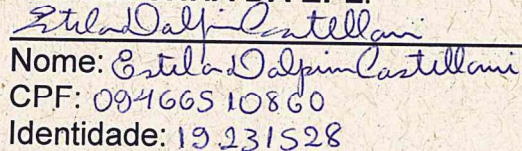 Estela Dalpim Castellani
Nome: Estela Dalpim Castellani
CPF: 09466510860
Identidade: 19.231528